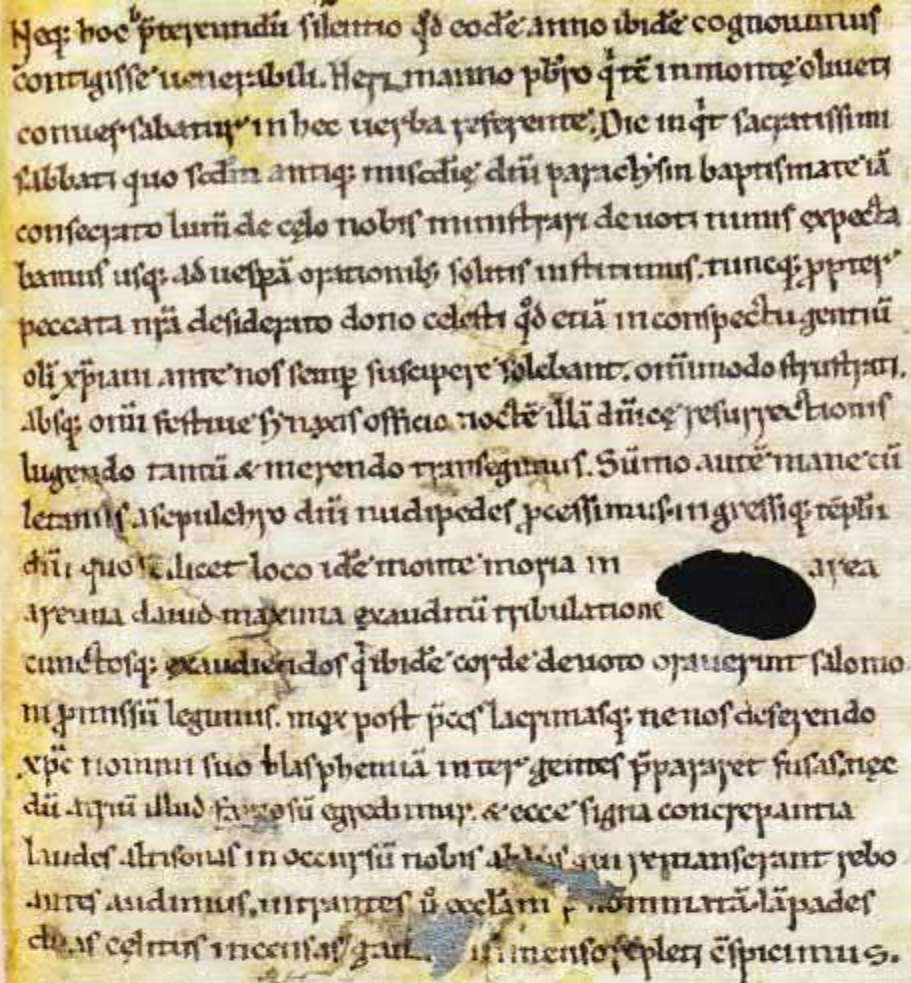 Neq; hoc p̄tereundū silentio qd̄ eodē anno ibidē cognouimus
contigisse uenerabili. Herimanno pb̄ro q̇ tē in monte oliueti
conuersabatur in hec uerba referente. Die inq̇t sacratissimi
sabbati quo scd̄m antiq; misedie dn̄i paraclysin baptismate iā
consecrato lum̄ de celo nobis ministrari deuoti nimis expecta
bamus usq; ad uesꝑā orationib; solitis institimus. tuncq; ꝓpter
peccata nr̄a desiderato dono celesti qd̄ etiā in conspectu gentiū
oli xp̄iani ante nos semꝑ suscipere solebant. om̄imodo frustrati.
absq; om̄i festiue synaxis officio noctē illā dn̄ice resurrectionis
lugendo tantū & merendo transegimus. Sūmo autē mane cū
letaniis a sepulchro dn̄i nudipedes ꝓcessimus. ingressiq; tēplū
dn̄i quo scilicet loco idē monte moria in area
areuna dauid maxima exauditū tribulatione
cunctosq; exaudiendos q̇ ibidē corde deuoto orauerint salomo
ni ꝓmissū legimus. mox post p̄ces lacrimasq; ne nos deserendo
xp̄c nomini suo blasphemiā inter gentes p̄pararet fusas. nec
dū atriū illud egredimur. & ecce signa concrepantia
laudes altisonas in occursū nobis qui remanserant rebo
antes audimus. intrantes ū ecclām nominatā lāpades
duas celitus incensas inmenso repleti c̄spicimus.